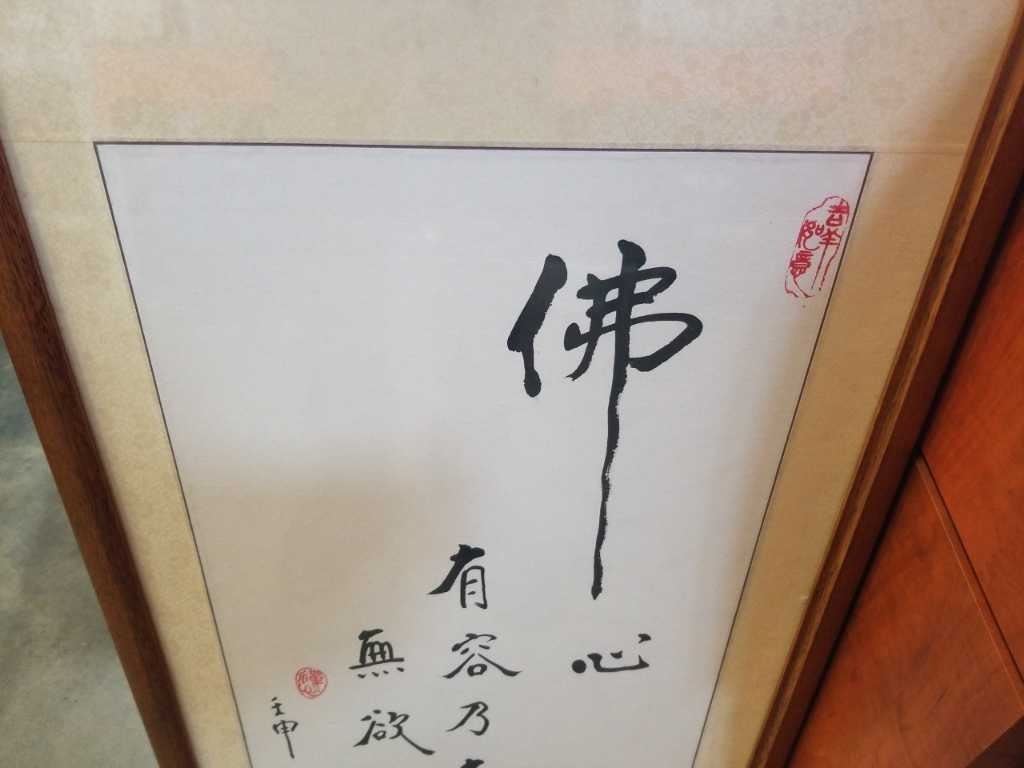 佛心
有容乃
無欲
壬申